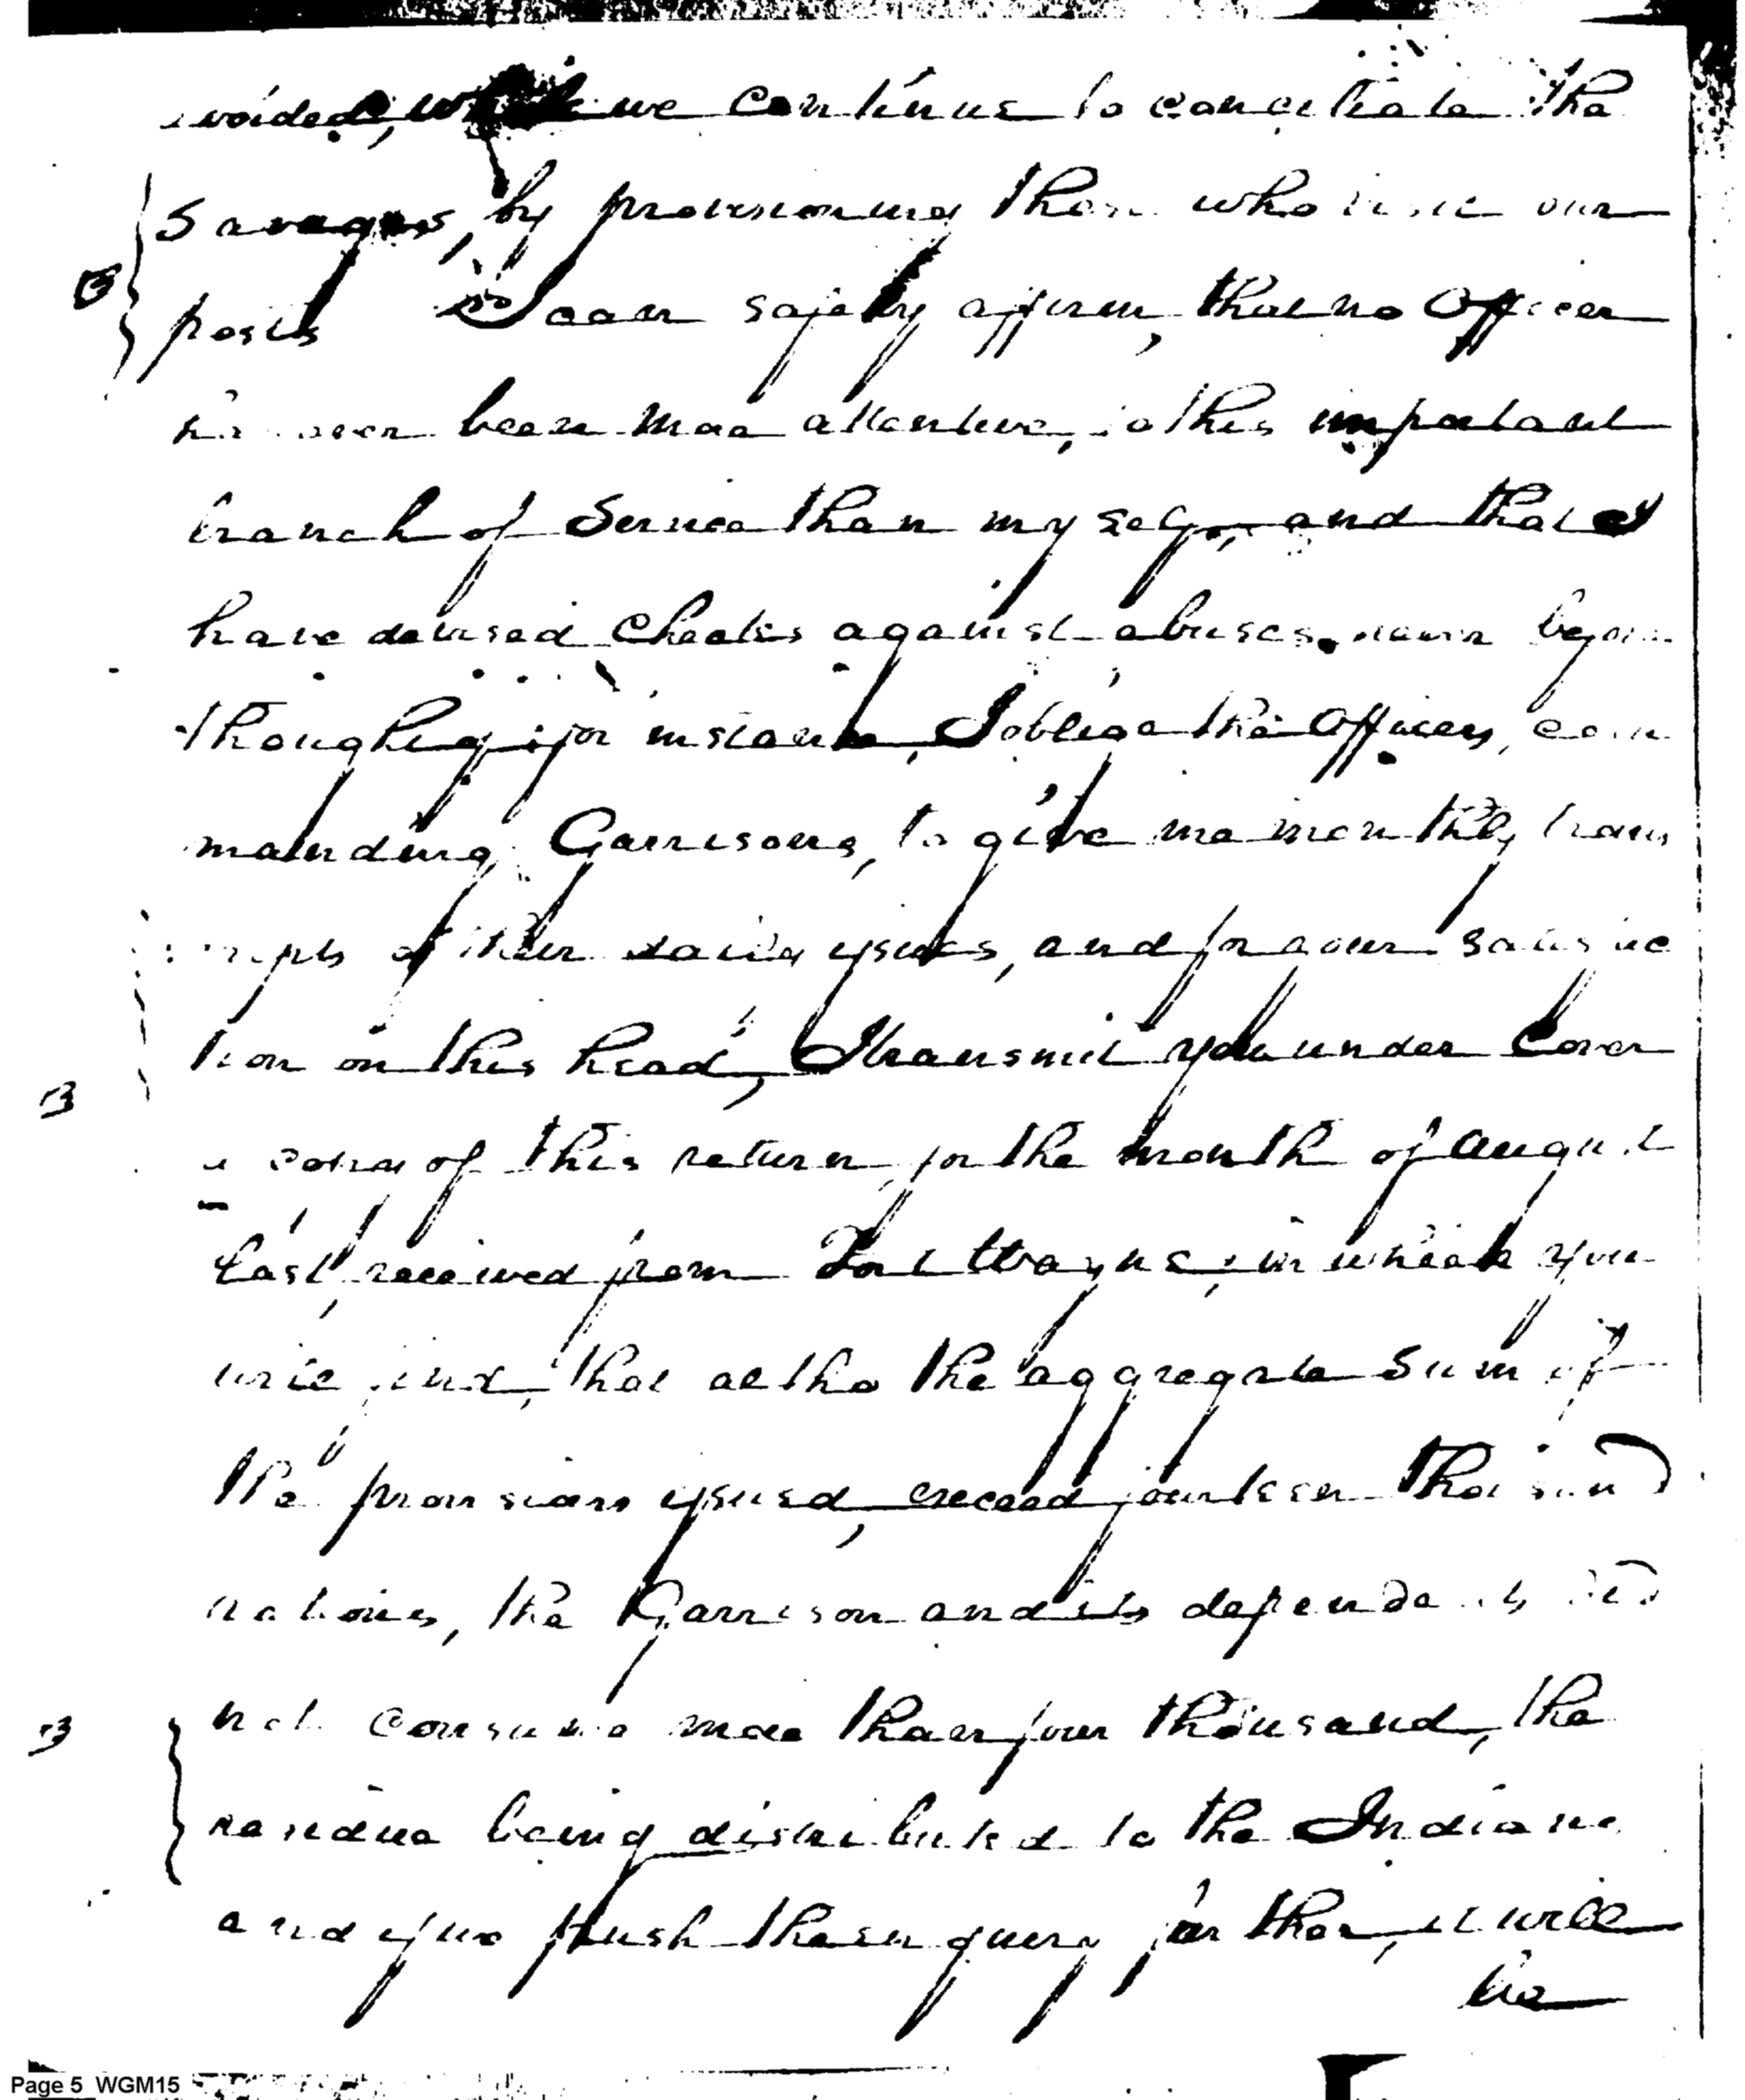 avoided, while we continue to conciliate the
Savages, by provisioning those who visit our
posts I can safely affirm, that no Officer
has ever been more attentive, to this important
branch of Service than myself, and that I
have devised Checks against abuses, never before
thought of; for instance, I oblige the Officers, com
manding Garrisons, to give me monthly trans
cripts of their daily issues, and for your satisfac
tion on this head, I transmit you under Cover
a copy of this return for the month of August
last, received from Fort Wayne; in which you
will find, that altho the aggregate Sum of
the provisions issued, exceed fourteen thousand
rations, the Garrison and its dependents did
not consume more than four thousand, the
residue being distributed to the Indians
and if we push the enquiry farther, it will
be
B
B
Page 5 WGM15